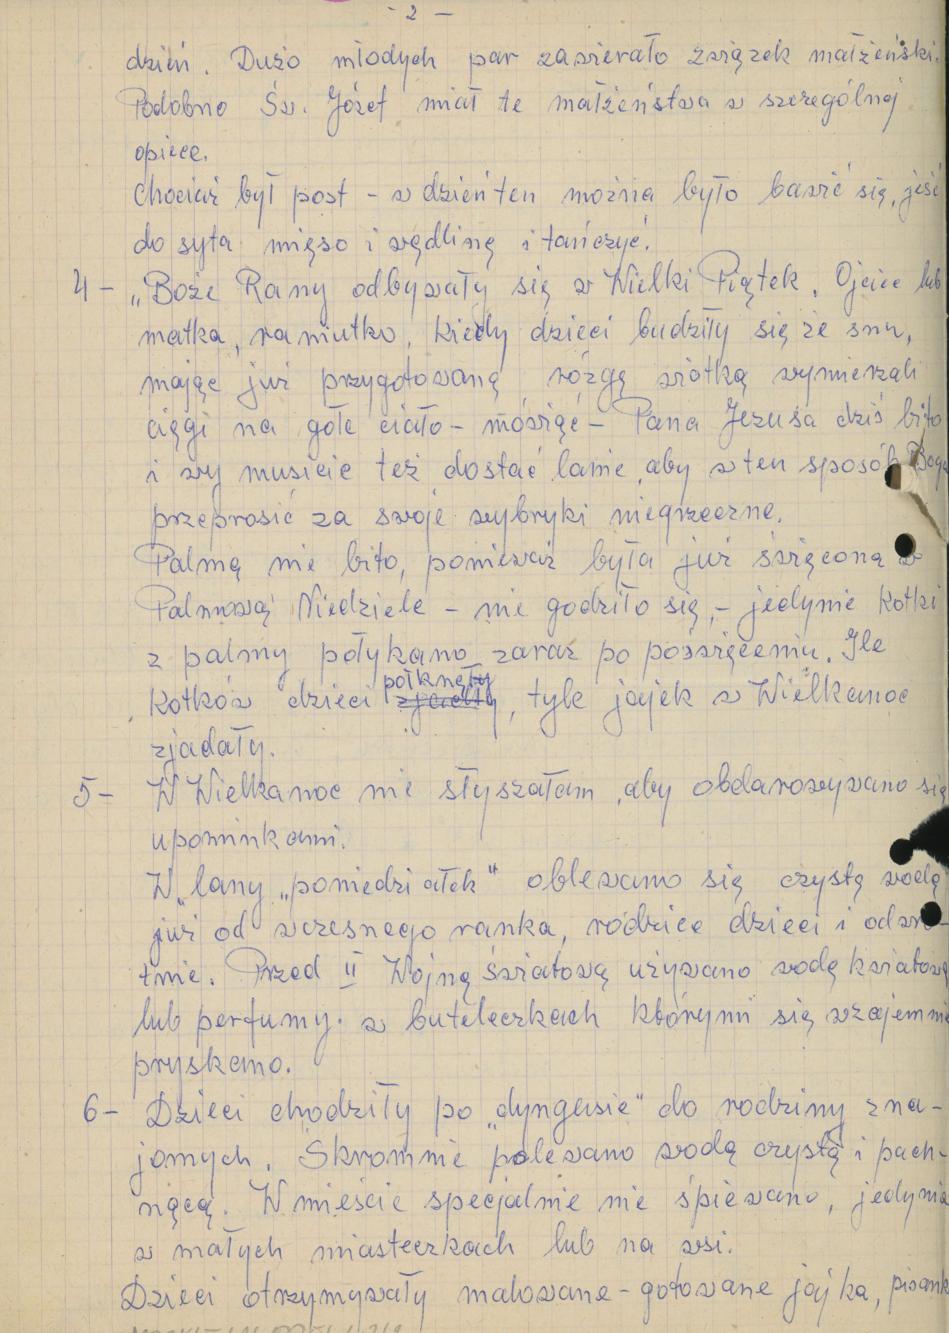 - 2 -
dzień. Dużo młodych par zawierało związek małżeński.
Podobno Św. Józef miał te małżeństwa w szczególnej
opiece.
Chociaż był post - w dzień ten można było bawić się, jeść
do syta mięso i wędlinę i tańczyć.
4 - „Boże Rany odbywały się w Wielki Piątek. Ojciec lub
matka, raniutko, kiedy dzieci budziły się ze snu,
mając już przygotowaną rózgę wiotką wymierzali
cięgi na gołe ciało - mówiąc - Pana Jezusa dziś bito
i wy musicie też dostać lanie, aby w ten sposób Boga
przeprosić za swoje wybryki niegrzeczne.
Palmą nie bito, ponieważ była już święconą w
Palmową Niedziele - nie godziło się, - jedynie kotki
z palmy połykano zaraz po poświęceniu. Ile
kotków dzieci połknęły, tyle jajek w Wielkanoc
zjadały.
5 - W Wielkanoc nie słyszałam, aby obdarowywano się
upominkami.
W „lany „poniedziałek" oblewano się czystą wodą
już od wczesnego ranka, rodzice dzieci i odwro-
tnie. Przed II Wojną Światową używano wodę kwiatową
lub perfumy. w buteleczkach którymi się wzajemnie
pryskano.
6 - Dzieci chodziły po „dyngusie" do rodziny zna-
jomych. Skromnie polewano wodą czystą i pach-
nącą. W mieście specjalnie nie śpiewano, jedynie
w małych miasteczkach lub na wsi.
Dzieci otrzymywały malowane - gotowane jajka, pisanki